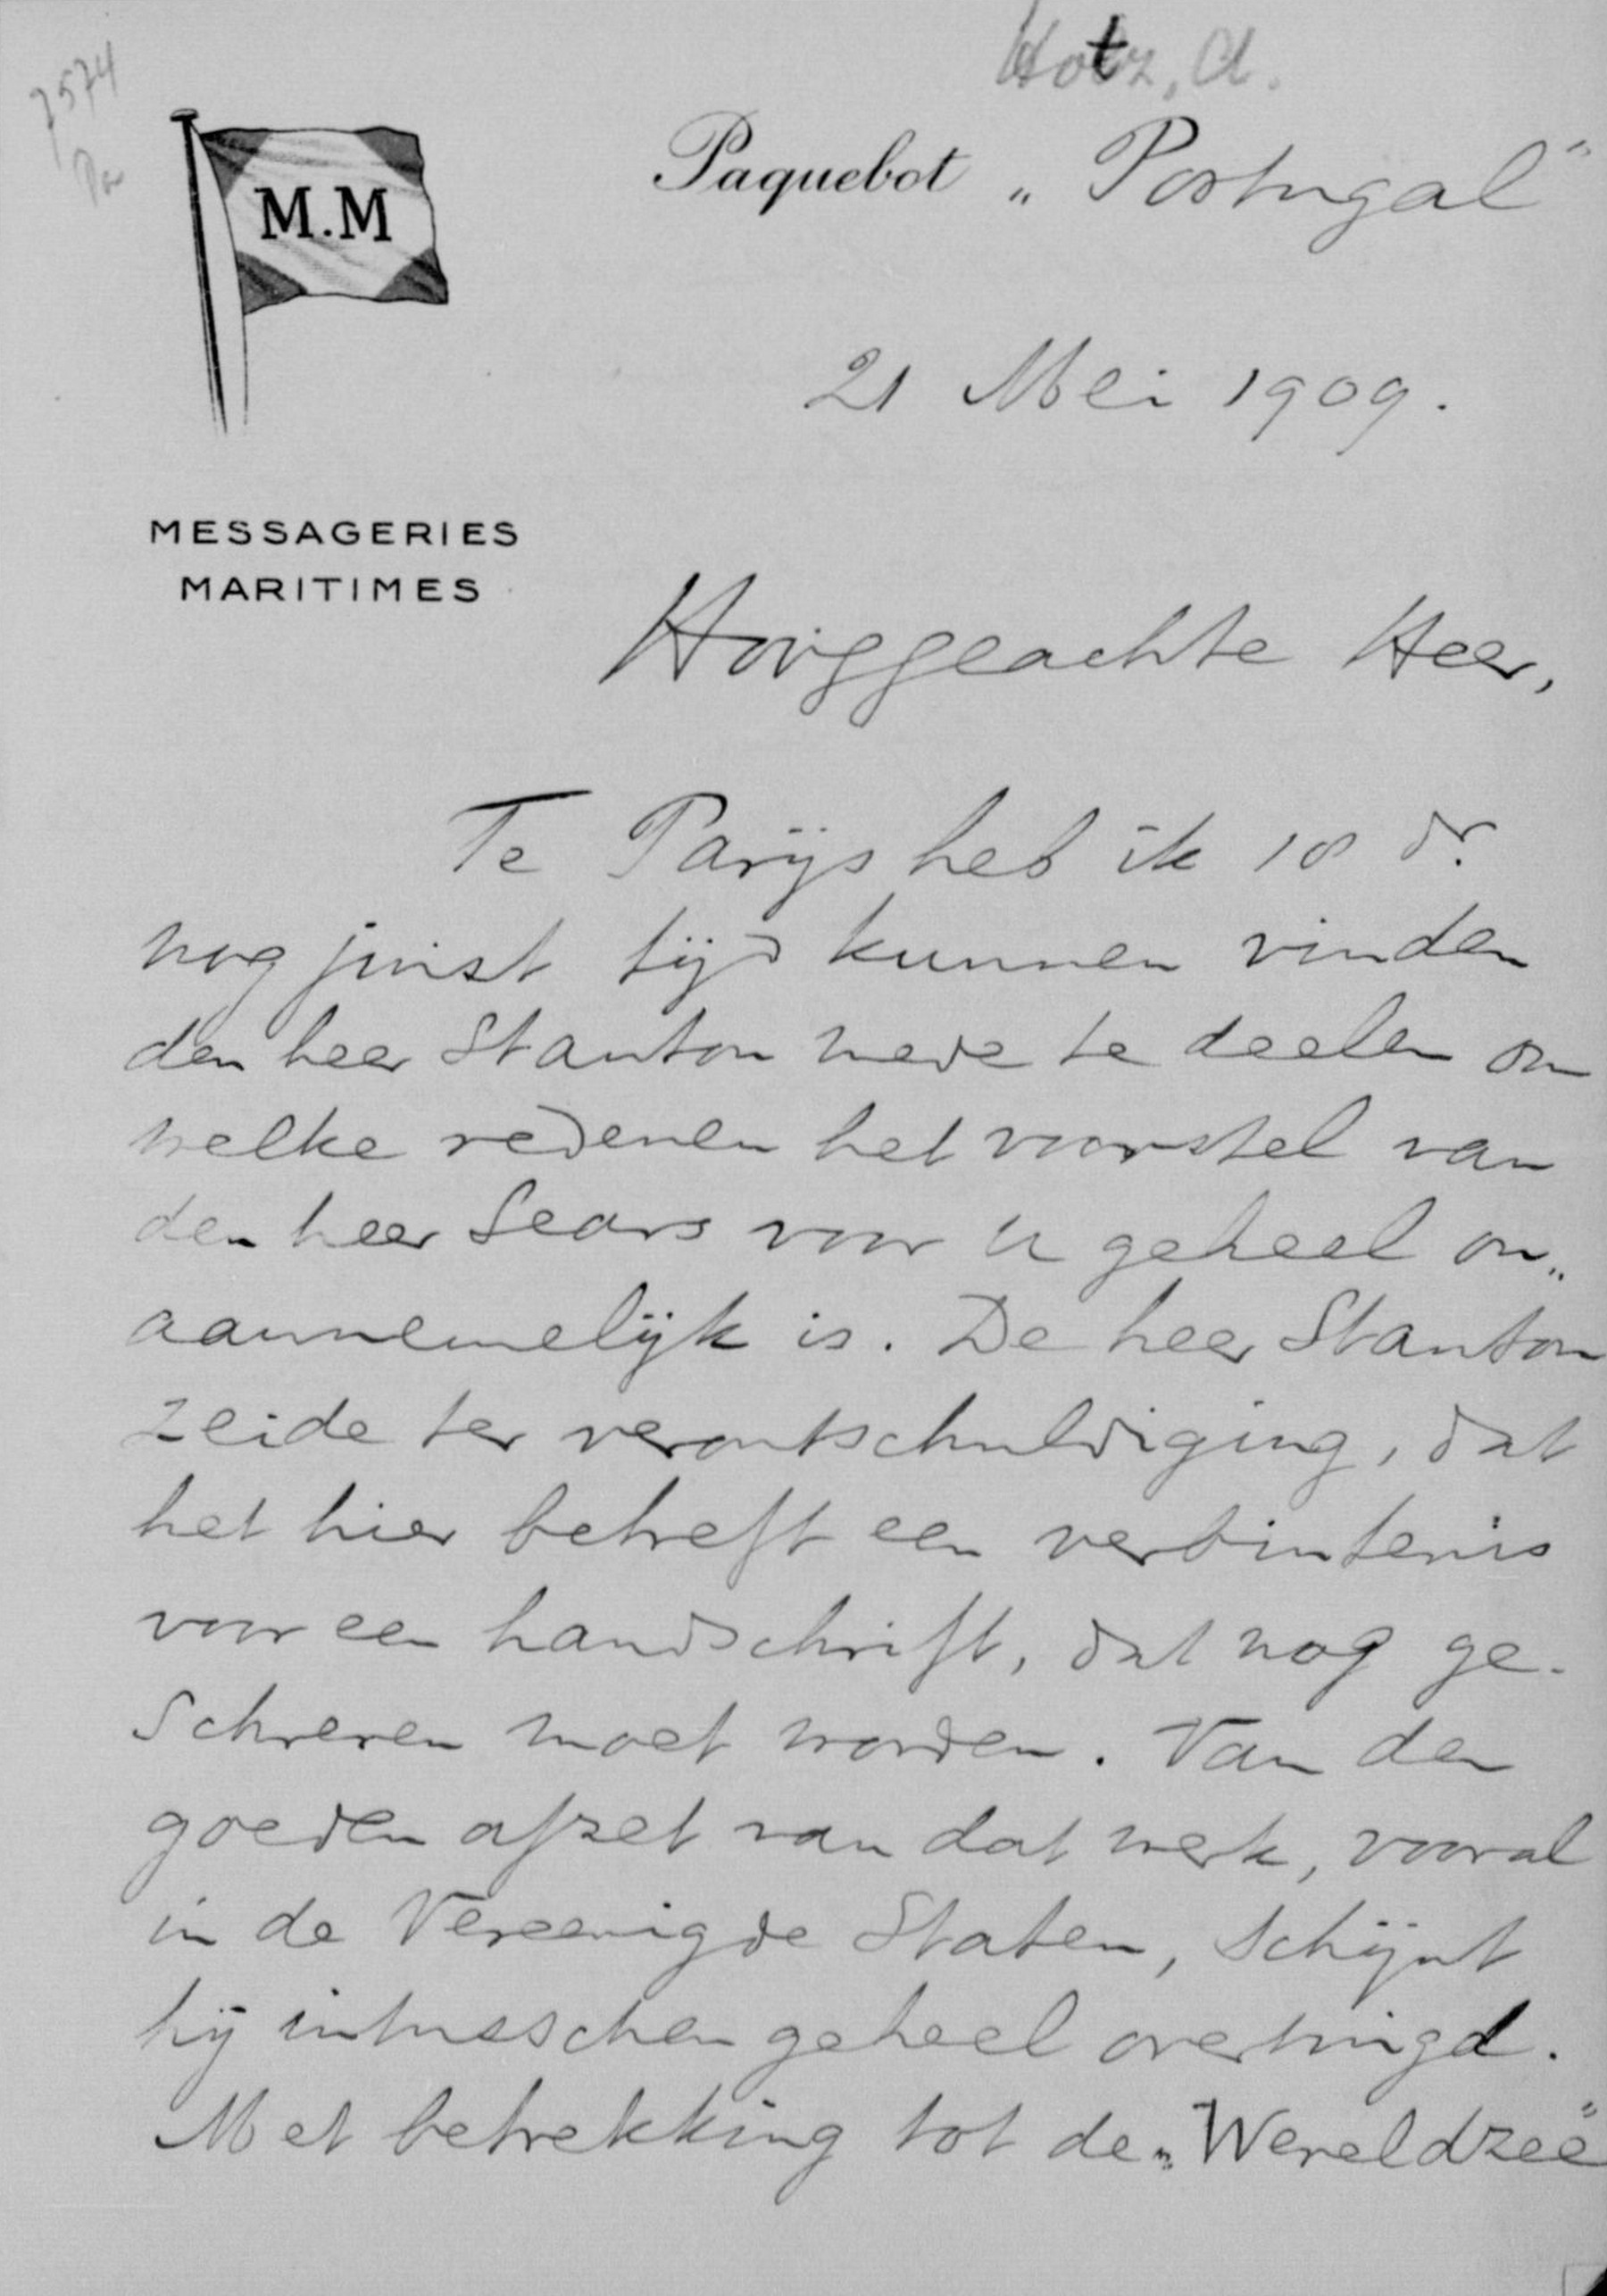 Hotz, A.
7574
Pa
M.M
Paquebot „Portugal"
21 Mei 1909.
MESSAGERIES
MARITIMES
Hooggeachte Heer,
Te Parijs heb ik 18 dr.
nog juist tijd kunnen vinden
den heer Stanton mede te deelen om
welke redenen het voorstel van
den heer Sears voor U geheel on„
aannemelijk is. De heer Stanton
zeide ter verontschuldiging, dat
het hier betreft een verbintenis
voor een handschrift, dat nog ge-
schreven moet worden. Van den
goeden afzet van dat werk, vooral
in de Vereenigde Staten, schijnt
hij intusschen geheel overtuigd.
Met betrekking tot de „Wereldzee"